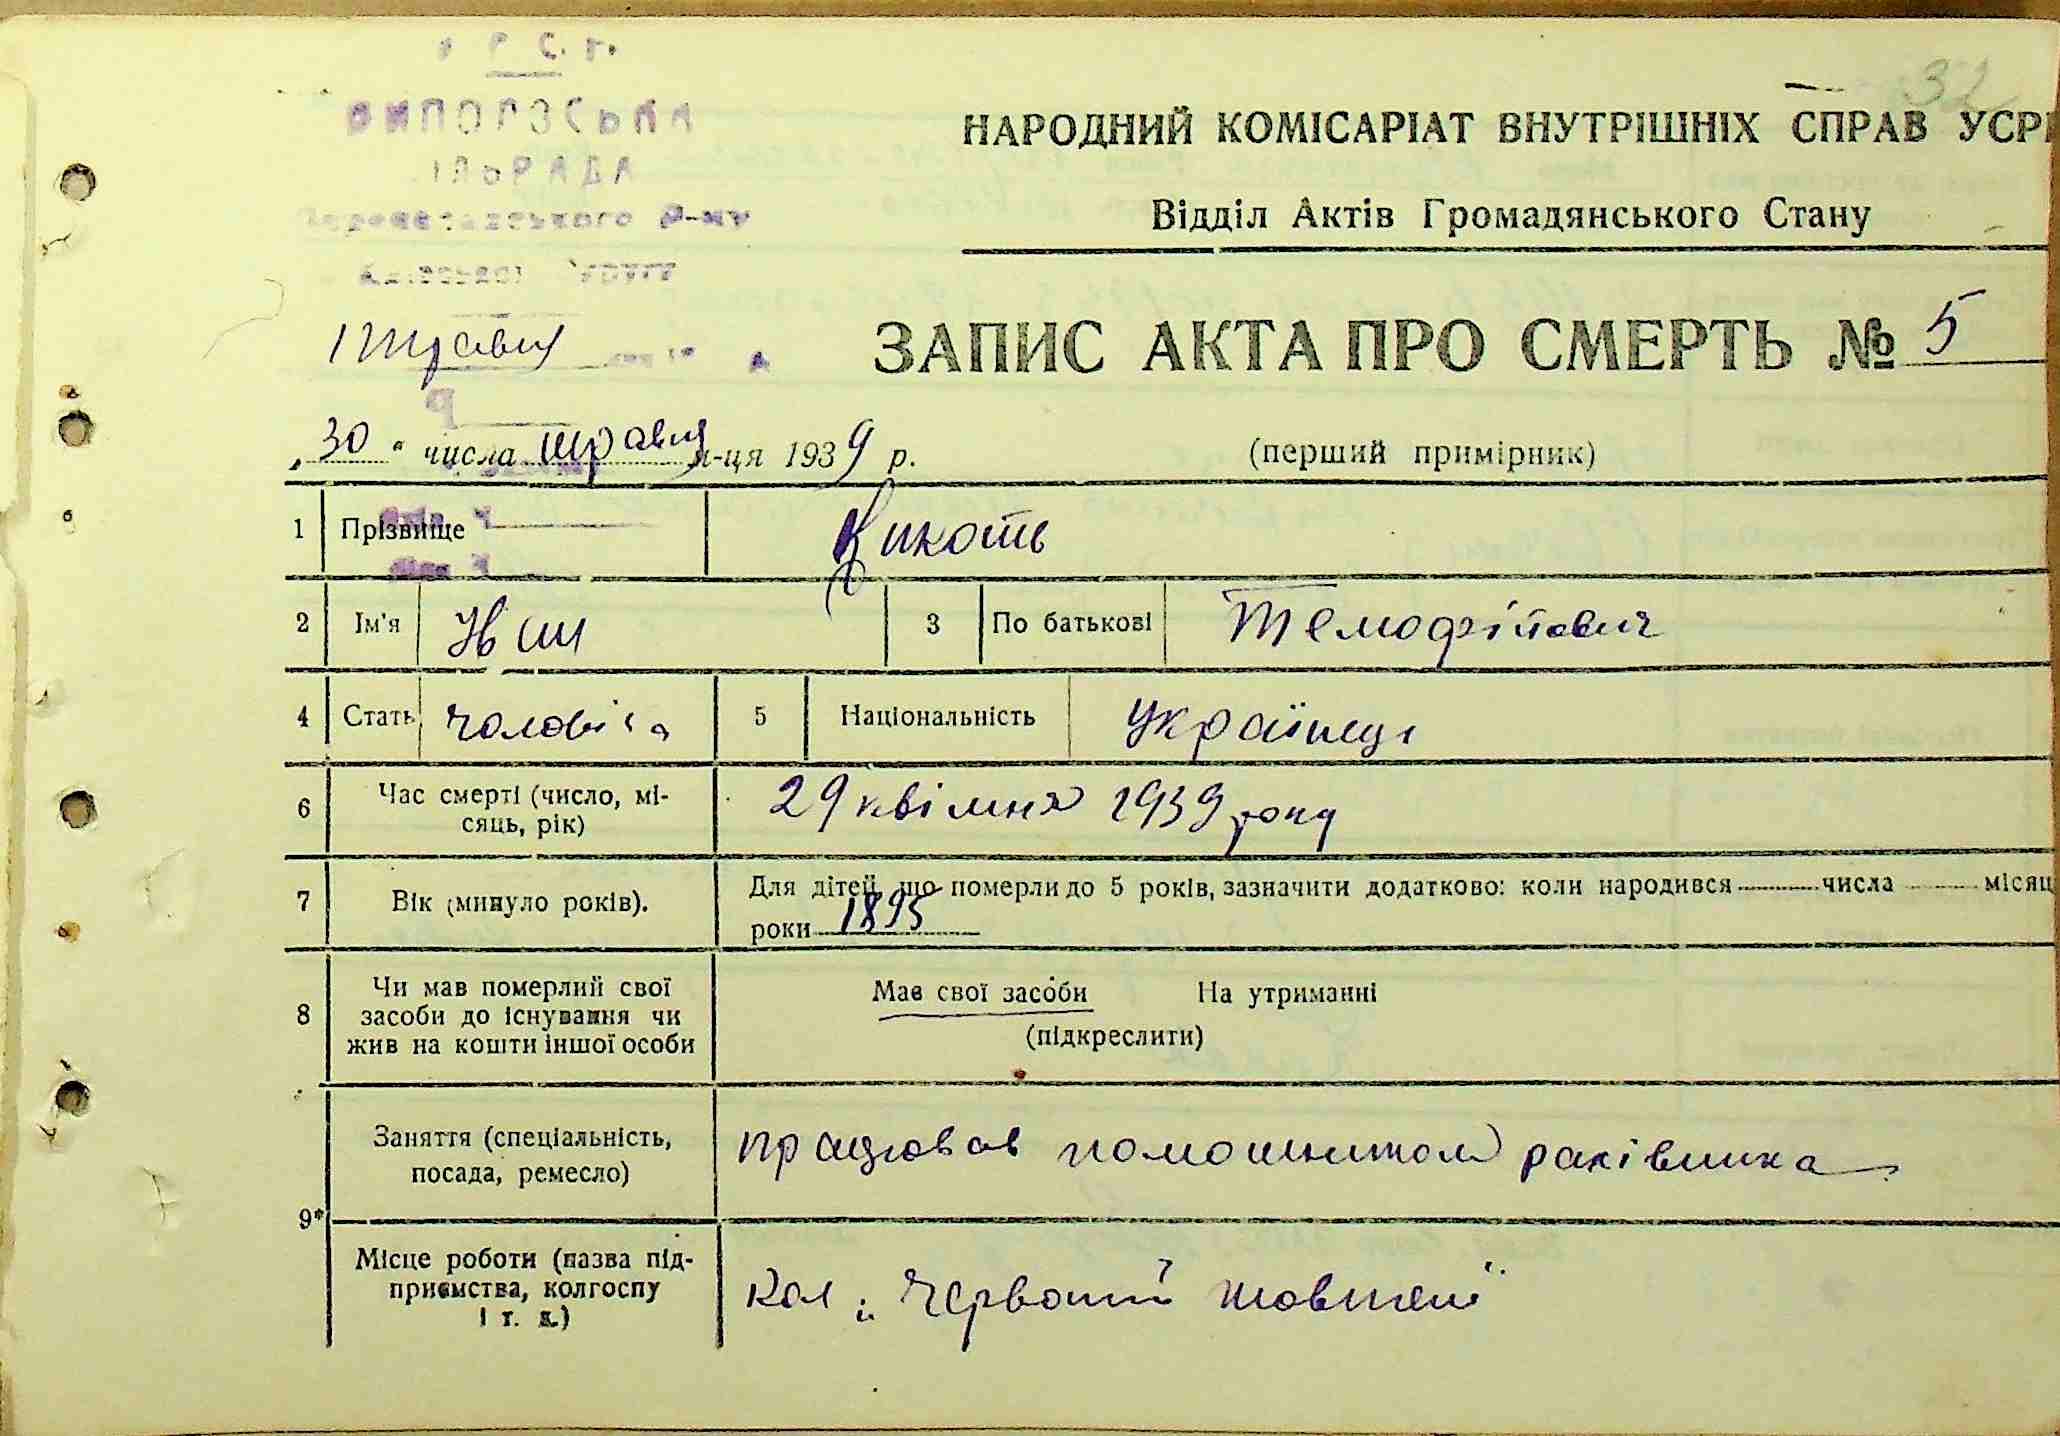 32
НАРОДНИЙ КОМІСАРІАТ ВНУТРІШНІХ СПРАВ УСРР
Відділ Актів Громадянського Стану
ЗАПИС АКТА ПРО СМЕРТЬ № 5
ІЛЬРАДА
1 травня
„30" числа травня м-ця 1939 р.
(перший примірник)
1 Прізвище Кикоть
2 Ім'я 3 По батькові Темофійович
4 Стать чоловіча 5 Національність українець
6 Час смерті (число, мі-
сяць, рік)
29 квітня 1939 року
7 Вік (минуло років).
Для дітей, що померли до 5 років, зазначити додатково: коли народився числа місяц
роки 1895
8 Чи мав померлий свої
засоби до існування чи
жив на кошти іншої особи
Має свої засоби На утриманні
(підкреслити)
9* Заняття (спеціальність,
посада, ремесло)
працював помошником раківника
Місце роботи (назва під-
приємства, колгоспу
і т. д.)
Кол „Червоний жовтень"